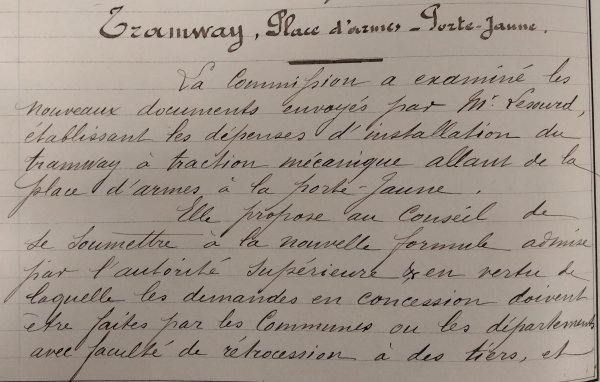 Tramway, Place d'armes - Porte-Jaune.
La Commission a examiné les
nouveaux documents envoyés par Mr. Lesourd,
établissant les dépenses d'installation du
tramway à traction mécanique allant de la
place d'armes à la porte-Jaune.
Elle propose au Conseil de
se soumettre à la nouvelle formule admise
par l'autorité supérieure & en vertu de
laquelle les demandes en concession doivent
être faites par les Communes ou les départements
avec faculté de rétrocession à des tiers, et